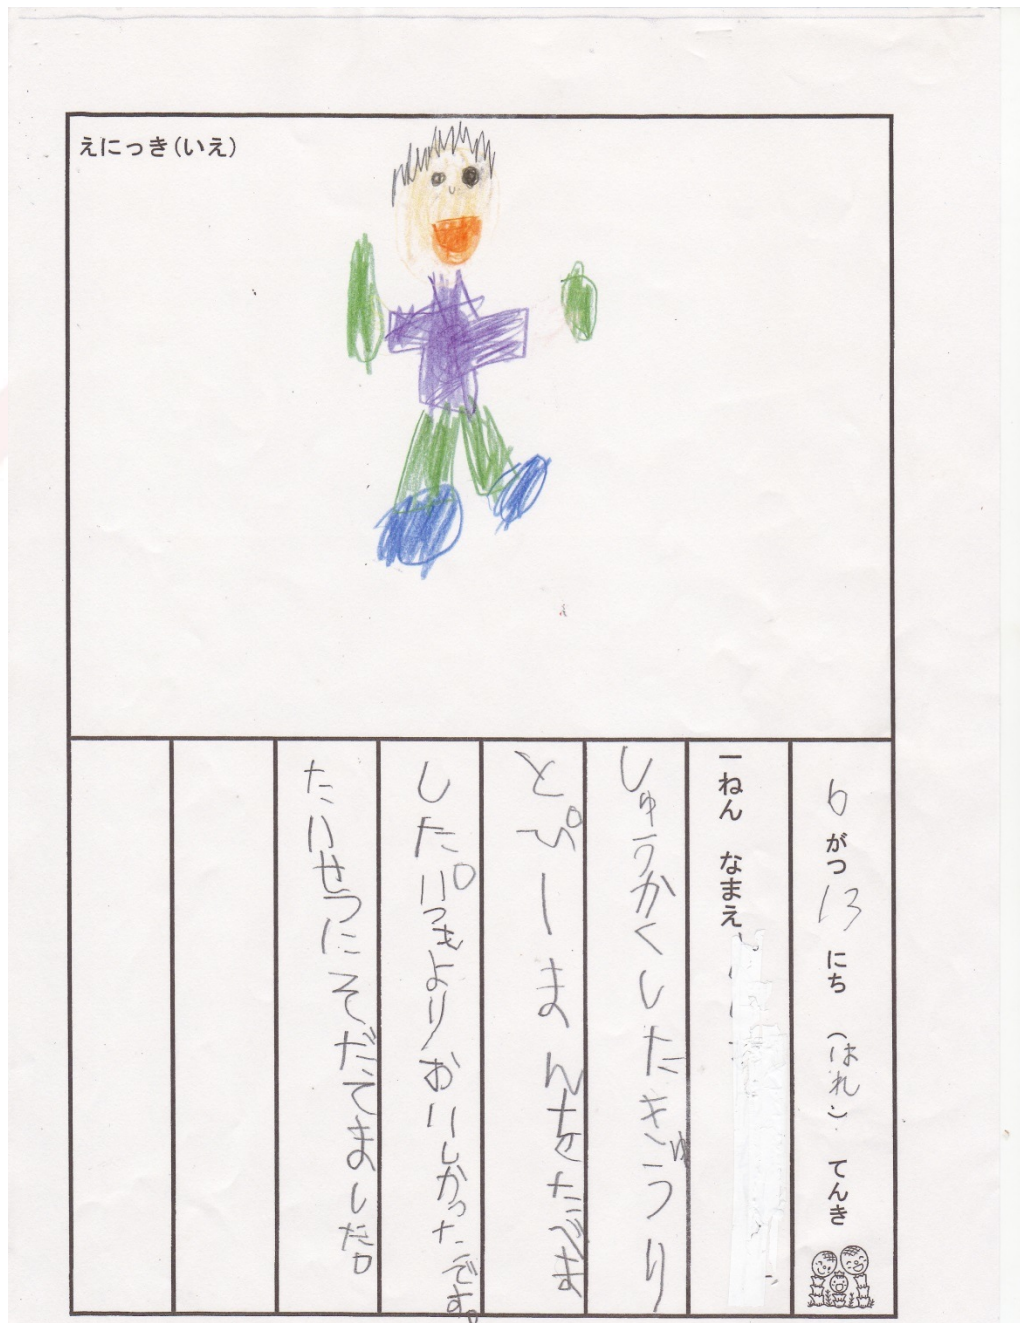 えにっき(いえ)
6がつ13にち(はれ)てんき
一ねん なまえ
しゅうかくしたきゅうり
とぴーまんをたべま
した。いつもよりおいしかったです。
たいせつにそだてました。